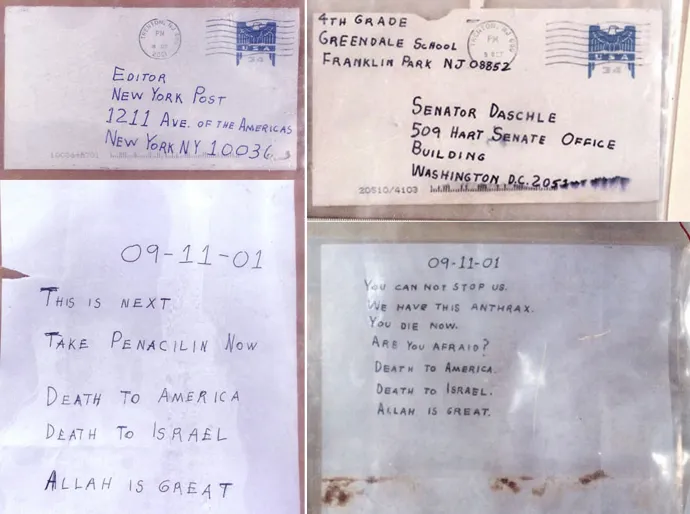 TRENTON, NJ
PM
2001
USA
34
EDITOR
NEW YORK POST
1211 AVE. OF THE AMERICAS
NEW YORK NY 10036
09-11-01
THIS IS NEXT
TAKE PENACILIN NOW
DEATH TO AMERICA
DEATH TO ISRAEL
ALLAH IS GREAT
4TH GRADE
GREENDALE SCHOOL
FRANKLIN PARK NJ 08852
TRENTON, NJ
PM
USA
34
SENATOR DASCHLE
509 HART SENATE OFFICE
BUILDING
WASHINGTON D.C.
20510/4103
09-11-01
YOU CAN NOT STOP US.
WE HAVE THIS ANTHRAX.
YOU DIE NOW.
ARE YOU AFRAID?
DEATH TO AMERICA.
DEATH TO ISRAEL.
ALLAH IS GREAT.